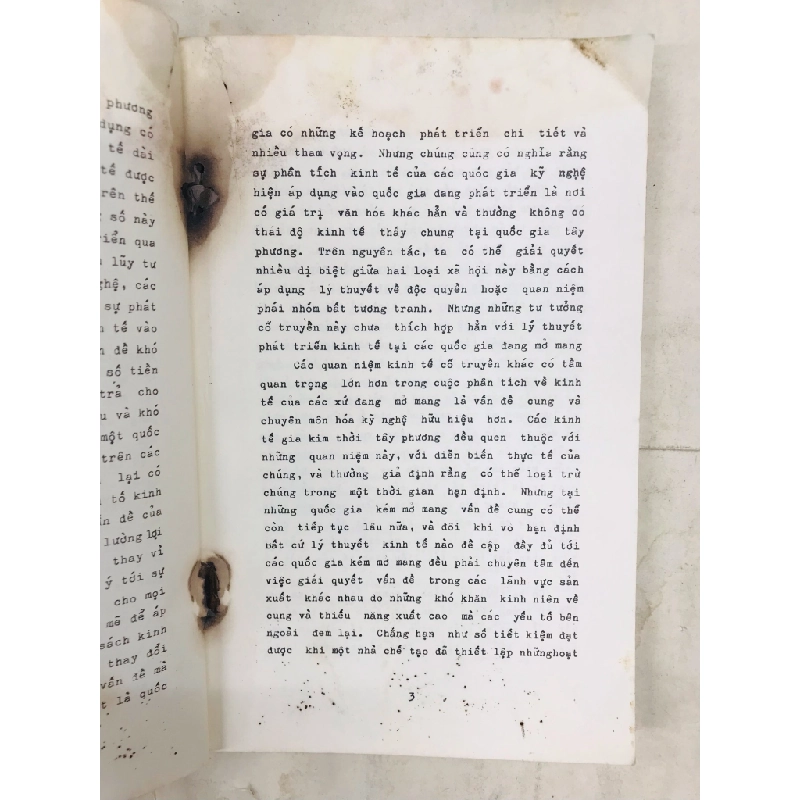 phương
dụng có
tế dài
tế được
trên thế
số này
triển qua
lũy tư
nghệ, các
sự phát
tế vào
đề khó
số tiền
trả cho
và khó
một quốc
trên các
lại có
tố kinh
vấn đề của
lường lợi
thay vì
ý tới sự
cho mọi
mẽ để áp
sách kinh
thay đổi
vấn đề mà
là quốc
gia có những kế hoạch phát triển chi tiết và
nhiều tham vọng. Nhưng chúng cũng có nghĩa rằng
sự phân tích kinh tế của các quốc gia kỹ nghệ
hiện áp dụng vào quốc gia đang phát triển là nơi
có giá trị văn hóa khác hẳn và thường không có
thái độ kinh tế thấy chung tại quốc gia tây
phương. Trên nguyên tắc, ta có thể giải quyết
nhiều dị biệt giữa hai loại xã hội này bằng cách
áp dụng lý thuyết về độc quyền hoặc quan niệm
phái nhóm bất tương tranh. Nhưng những tư tưởng
cổ truyền này chưa thích hợp hẳn với lý thuyết
phát triển kinh tế tại các quốc gia đang mở mang
Các quan niệm kinh tế cổ truyền khác có tầm
quan trọng lớn hơn trong cuộc phân tích về kinh
tế của các xứ đang mở mang là vấn đề cung và
chuyên môn hóa kỹ nghệ hữu hiệu hơn. Các kinh
tế gia kim thời tây phương đều quen thuộc với
những quan niệm này, với diễn biến thực tế của
chúng, và thường giả định rằng có thể loại trừ
chúng trong một thời gian hạn định. Nhưng tại
những quốc gia kém mở mang vấn đề cung có thể
còn tiếp tục lâu nữa, và đôi khi vô hạn định
bất cứ lý thuyết kinh tế nào đề cập đầy đủ tới
các quốc gia kém mở mang đều phải chuyên tâm đến
việc giải quyết vấn đề trong các lãnh vực sản
xuất khác nhau do những khó khăn kinh niên về
cung và thiếu năng xuất cao mà các yếu tố bên
ngoài đem lại. Chẳng hạn như số tiết kiệm đạt
được khi một nhà chế tạo đã thiết lập nhữnghoạt
3